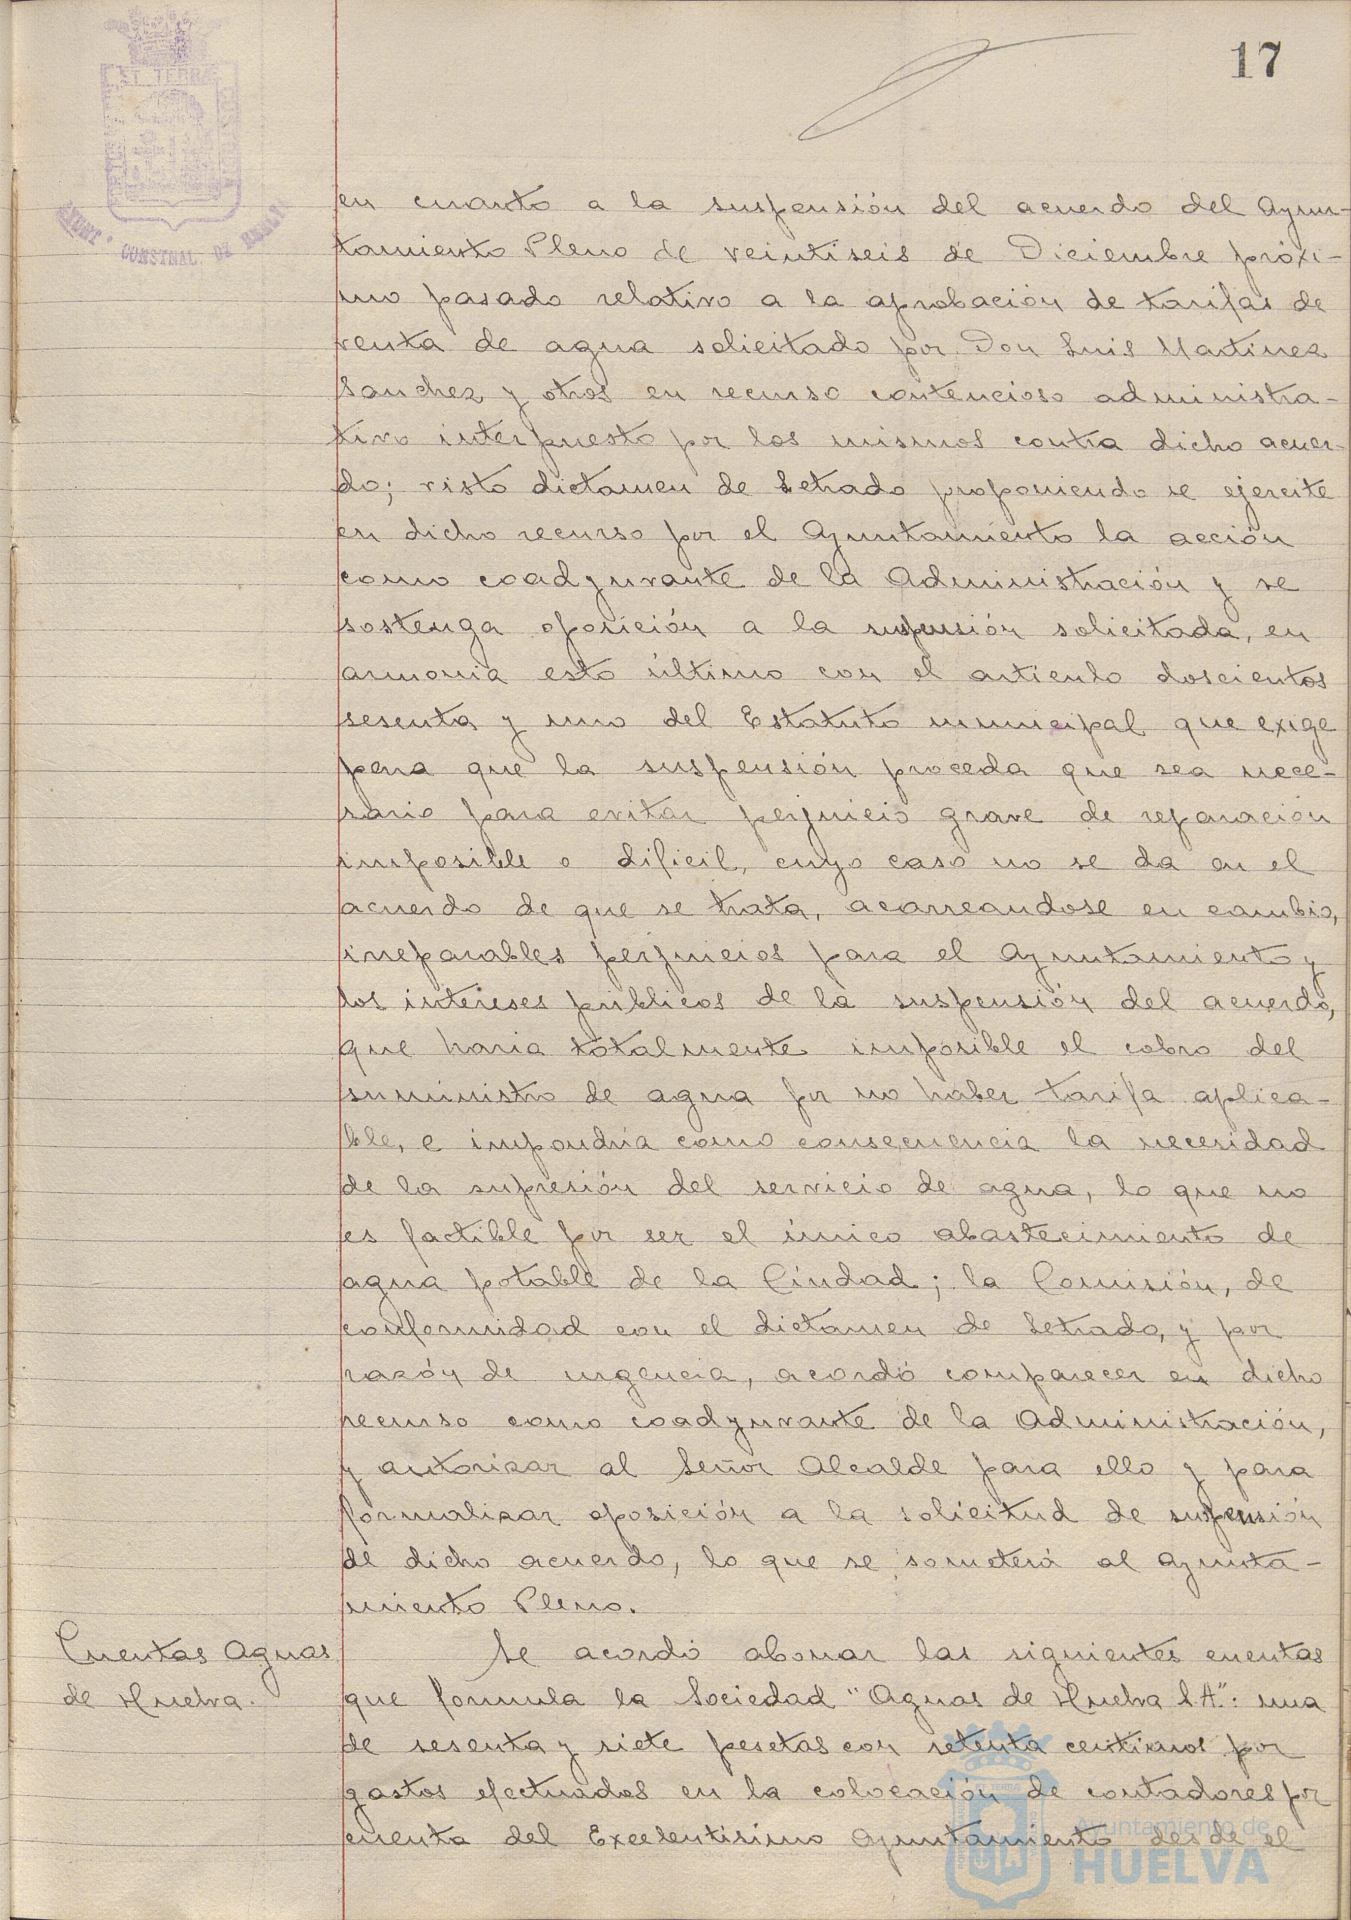 17
ET TERRA
CONSTNAL. DE
en cuanto a la suspensión del acuerdo del Ayun-
tamiento Pleno de veintiseis de Diciembre próxi-
mo pasado relativo a la aprobación de tarifas de
venta de agua solicitado por Don Luis Martinez
Sanchez y otros en recurso contencioso administra-
tivo interpuesto por los mismos contra dicho acuer-
do; visto dictamen de Letrado proponiendo se ejercite
en dicho recurso por el Ayuntamiento la acción
como coadyuvante de la Administración y se
sostenga oposición a la suspensión solicitada, en
armonia esto último con el articulo doscientos
sesenta y uno del Estatuto municipal que exige
para que la suspensión proceda que sea nece-
sario para evitar perjuicio grave de reparación
imposible o dificil, cuyo caso no se da en el
acuerdo de que se trata, acarreandose en cambio,
irreparables perjuicios para el Ayuntamiento y
los intereses públicos de la suspensión del acuerdo,
que haria totalmente imposible el cobro del
suministro de agua por no haber tarifa aplica-
ble, e impondria como consecuencia la necesidad
de la supresión del servicio de agua, lo que no
es factible por ser el único abastecimiento de
agua potable de la Ciudad; la Comisión, de
conformidad con el dictamen de Letrado, y por
razón de urgencia, acordó comparecer en dicho
recurso como coadyuvante de la Administración,
y autorizar al Señor Alcalde para ello y para
formalizar oposición a la solicitud de suspensión
de dicho acuerdo, lo que se someterá al Ayunta-
miento Pleno.
Cuentas Aguas
de Huelva.
Se acordó abonar las siguientes cuentas
que formula la Sociedad "Aguas de Huelva S.A.": una
de sesenta y siete pesetas con setenta centimos por
gastos efectuados en la colocación de contadores por
cuenta del Excelentisimo Ayuntamiento desde el
Ayuntamiento de
HUELVA